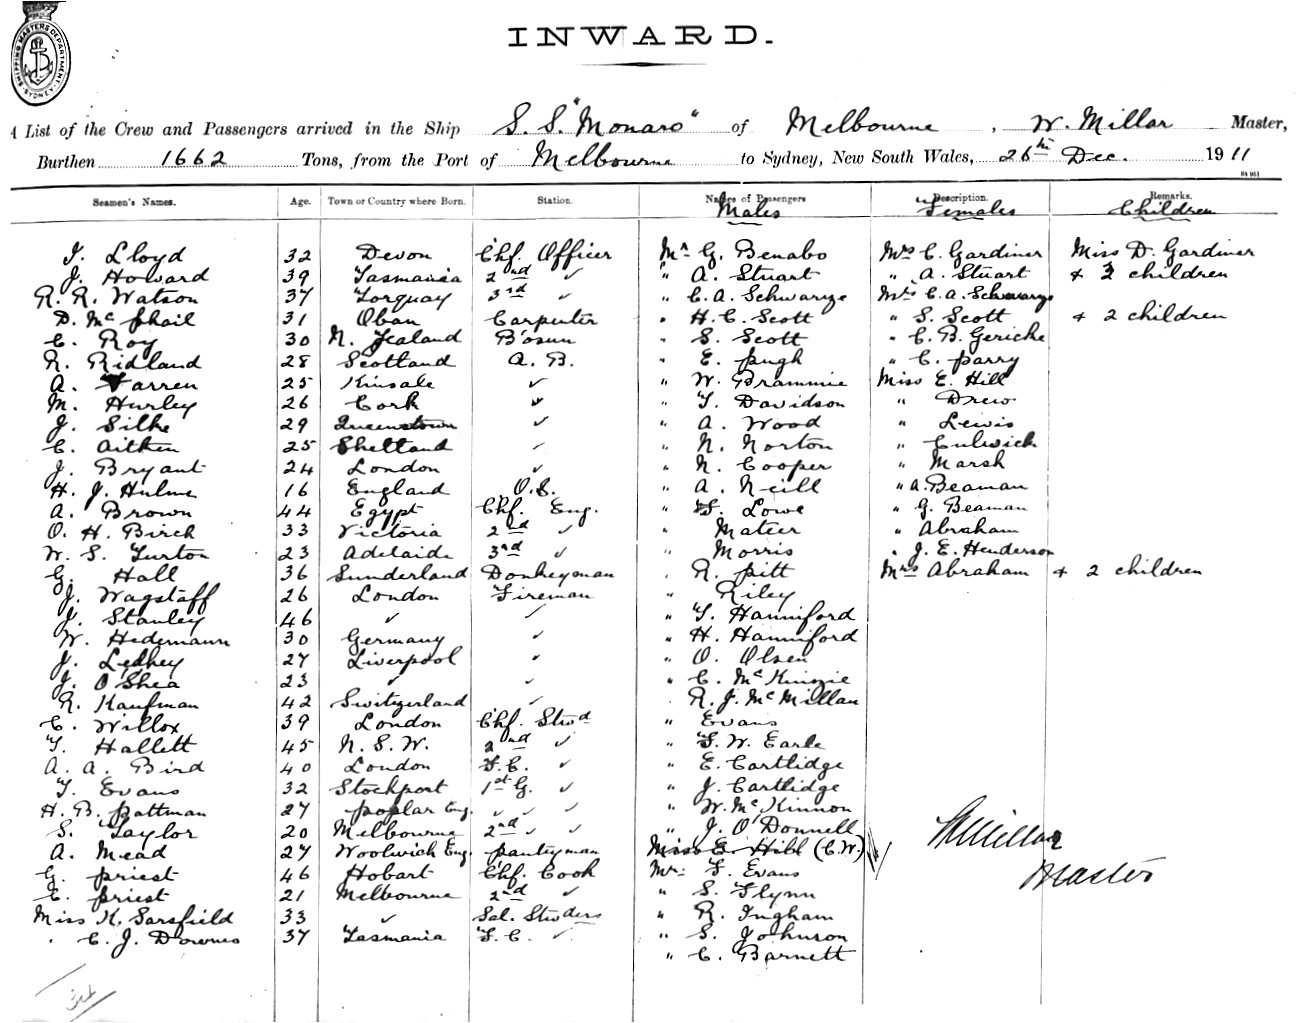 SHIPPING MASTERS DEPARTMENT. SYDNEY.
INWARD.
A List of the Crew and Passengers arrived in the Ship S. S. "Monaro" of Melbourne, W. Millar Master,
Burthen 1662 Tons, from the Port of Melbourne to Sydney, New South Wales, 26th Dec. 1911
Seamen's Names. Age. Town or Country where Born. Station. Names of Passengers Description. Remarks.
Males Females Children
J. Lloyd 32 Devon Chf. Officer Mr G. Benabo Mrs C. Gardiner Miss D. Gardiner
J. Howard 39 Tasmania 2nd ✓ " A. Stuart " A. Stuart + 3 children
R. R. Watson 37 Torquay 3rd ✓ " C. A. Schwarze Mrs C. A. Schwarze
D. McPhail 31 Oban Carpenter " H. C. Scott " S. Scott + 2 children
C. Roy 30 N. Zealand B'osun " S. Scott " C. B. Gericke
R. Ridland 28 Scotland A. B. " E. Pugh " C. Parry
A. Farren 25 Kinsale ✓ " W. Brammie Miss E. Hill
M. Hurley 26 Cork ✓ " T. Davidson " Drew
J. Silke 29 Queenstown ✓ " A. Wood " Lewis
C. Aitken 25 Shetland ✓ " N. Norton " Culwick
J. Bryant 24 London ✓ " N. Cooper " Marsh
H. J. Hulme 16 England O.S. " A. Neill " A. Beaman
A. Brown 44 Egypt Chf. Eng. " F. Lowe " G. Beaman
O. H. Birch 33 Victoria 2nd ✓ " Mateer " Abraham
W. S. Turton 23 Adelaide 3rd ✓ " Morris " J. E. Henderson
G. Hall 36 Sunderland Donkeyman " R. Pitt Mrs Abraham + 2 children
J. Wagstaff 26 London Fireman " Riley
J. Stanley 46 ✓ ✓ " T. Hanniford
W. Hedemann 30 Germany ✓ " H. Hanniford
J. Ledhey 27 Liverpool ✓ " O. Olsen
J. O'Shea 23 ✓ ✓ " C. McKinzie
R. Kaufman 42 Switzerland ✓ " R. J. McMillan
C. Willox 39 London Chf. Stwd " Evans
T. Hallett 45 N. S. W. 2nd ✓ " F. W. Earle
A. A. Bird 40 London F.C. ✓ " E. Cartlidge
T. Evans 32 Stockport 1st G. ✓ " J. Cartlidge
H. B. Pattman 27 Poplar Eng. ✓ ✓ ✓ " W. McKinnon
S. Taylor 20 Melbourne 2nd ✓ ✓ " J. O'Donnell
A. Mead 27 Woolwich Eng. Pantryman Miss E. Hill (C.W.)
G. Priest 46 Hobart Chf. Cook Mr. F. Evans
E. Priest 21 Melbourne 2nd ✓ " S. Flynn
Miss K. Sarsfield 33 ✓ Sal. Stwdess " R. Ingham
" C. J. Downes 37 Tasmania F. C. ✓ " S. Johnson
" C. Barnett
W Millar
Master